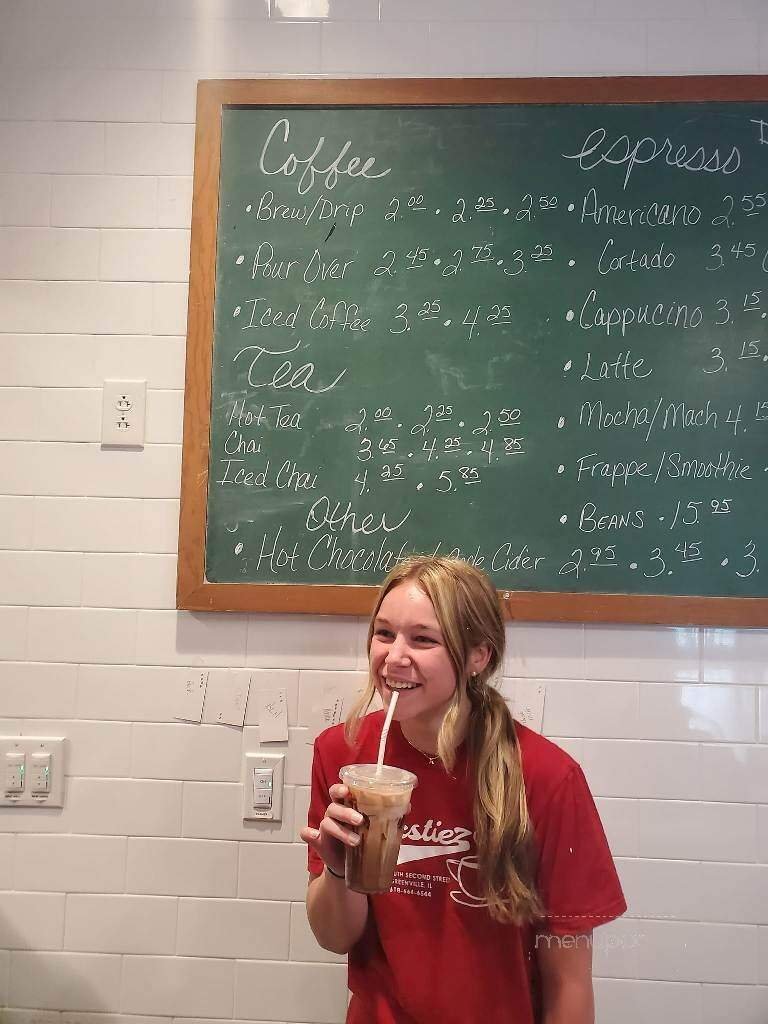 Coffee
• Brew/Drip 2.00 • 2.25 • 2.50
• Pour Over 2.45 • 2.75 • 3.25
• Iced Coffee 3.25 • 4.25
Tea
Hot Tea 2.00 • 2.25 • 2.50
Chai 3.65 • 4.25 • 4.85
Iced Chai 4.25 • 5.85
Other
• Hot Chocolate / Cider 2.95 • 3.45 • 3.
espresso
• Americano 2.55
• Cortado 3.45
• Cappucino 3.15
• Latte 3.15
• Mocha/Mach 4.15
• Frappe/Smoothie
• BEANS • 15.95
stiez
UTH SECOND STREET
GREENVILLE, IL
618-664-6544
menupix